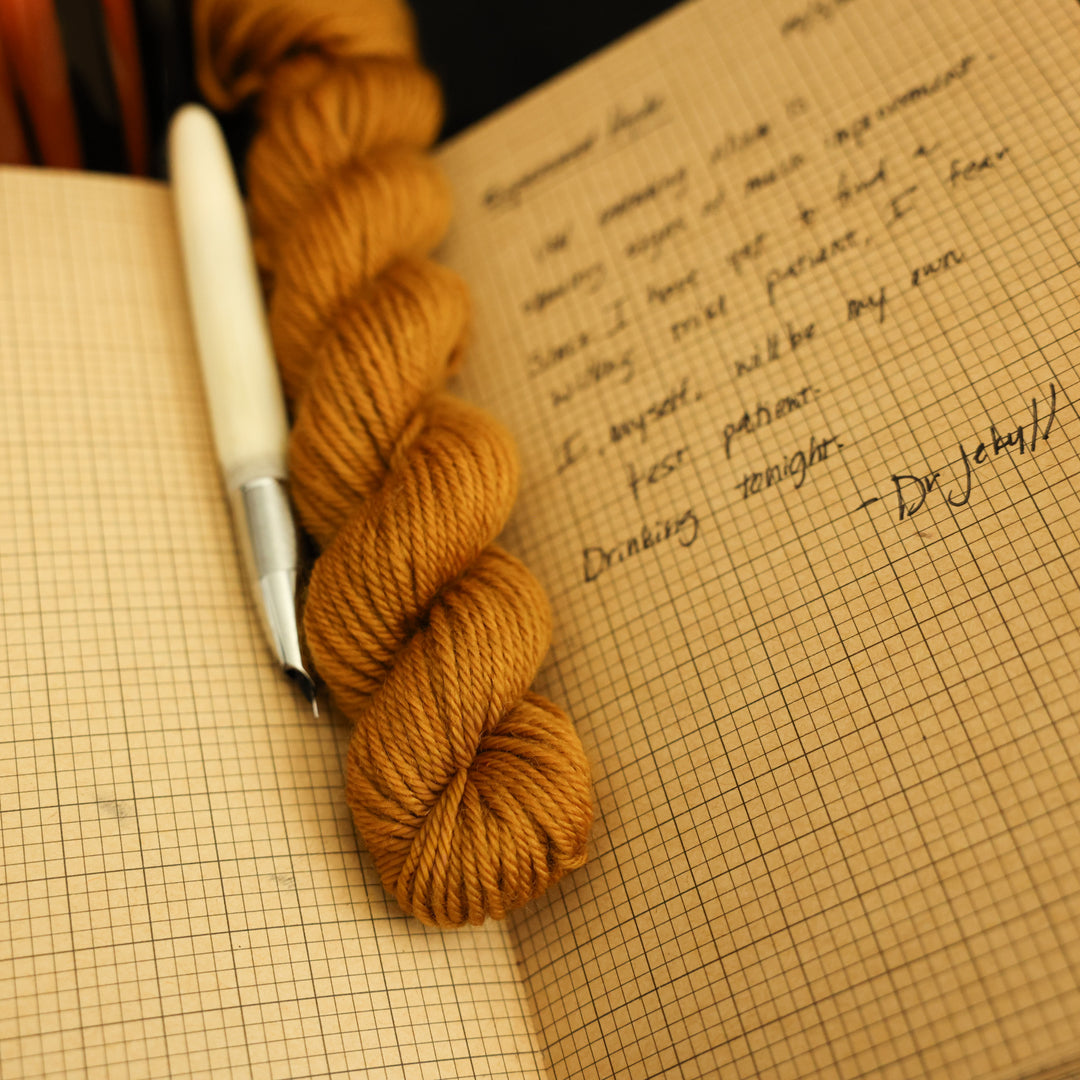 Experiment
the
showing signs of much improvement.
Since I have yet to find a
willing trial patient, I fear
I myself, will be my own
test patient.
Drinking tonight.
- Dr Jekyll